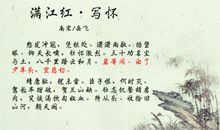 满江红·写怀
南宋/岳飞
怒发冲冠，凭栏处、潇潇雨歇。抬望
眼，仰天长啸，壮怀激烈。三十功名尘
与土，八千里路云和月。莫等闲、白了
少年头，空悲切！
靖康耻，犹未雪。臣子恨，何时灭。
驾长车踏破，贺兰山缺。壮志饥餐胡虏
肉，笑谈渴饮匈奴血。待从头、收拾旧
山河，朝天阙。